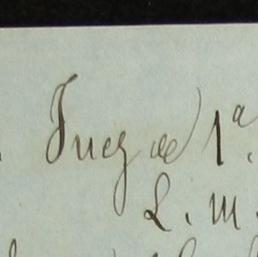 Juez de 1ª.
L. M.